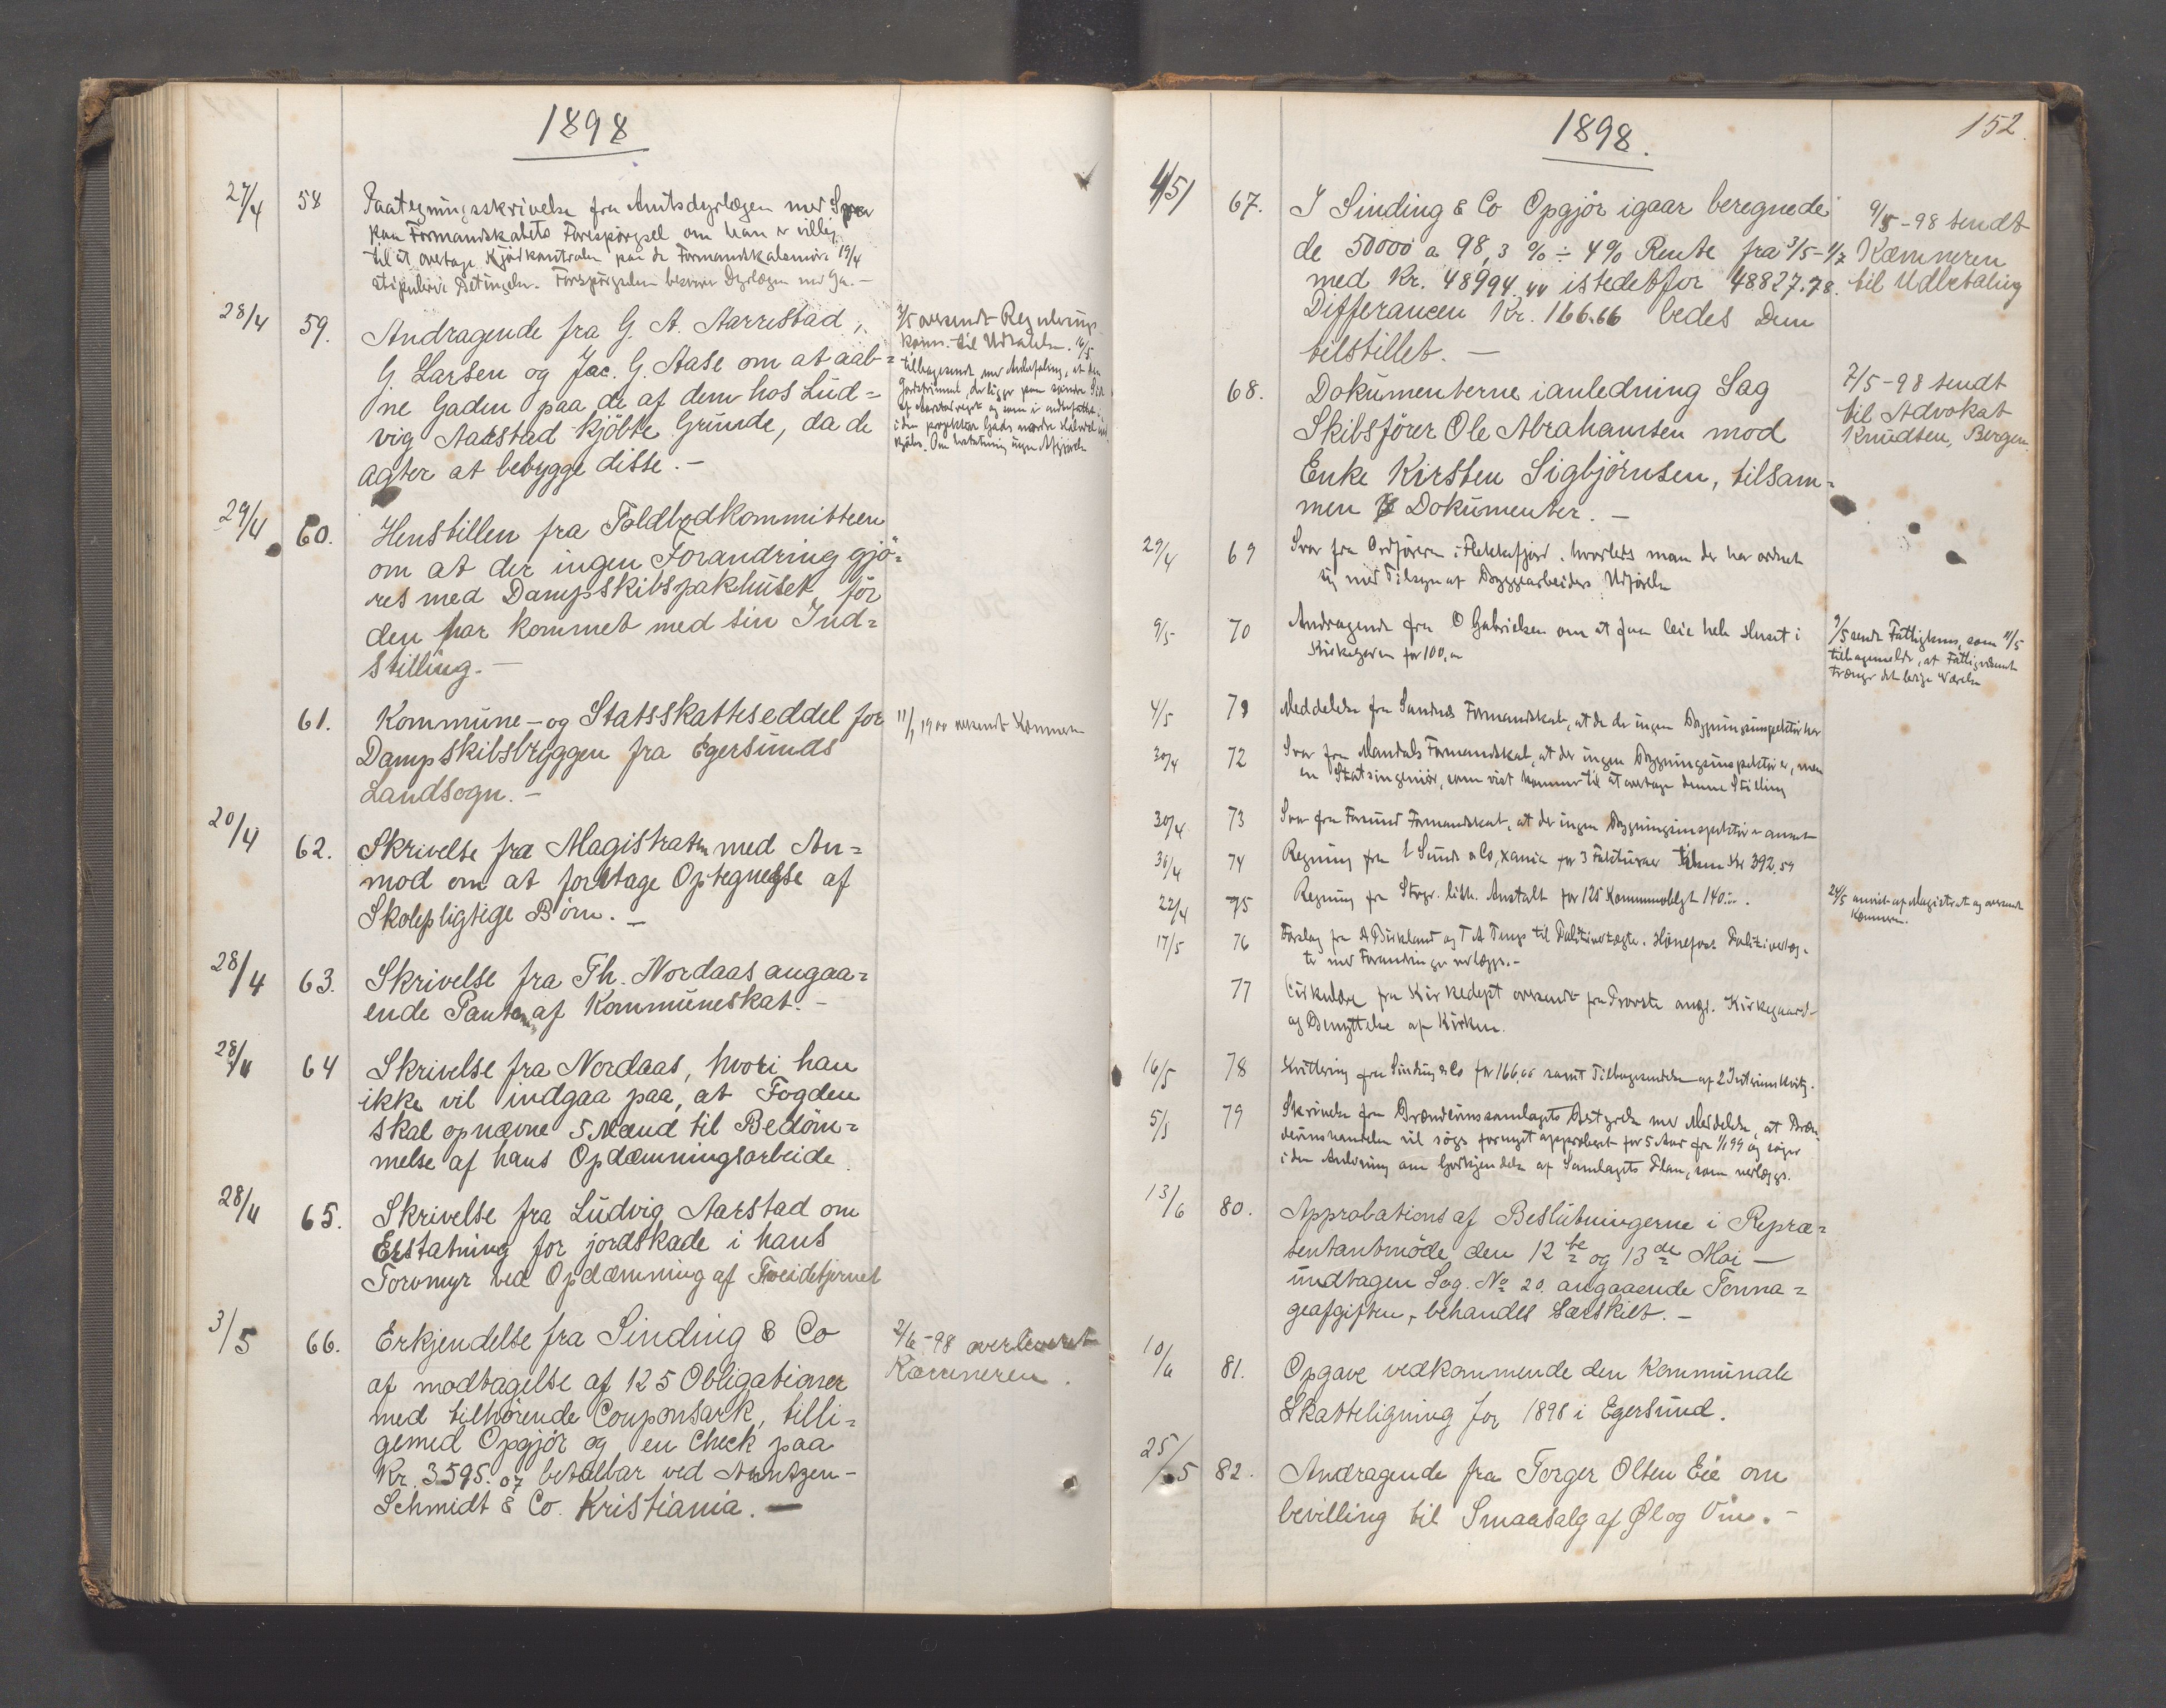 1898
27/4 58 Paategningsskrivelse fra Amtsdyrlægen med Svar
paa Formandskabets Forespörgsel om han er villig
til at overtage Kjödkontrolen paa de i Formandskabsmöde 19/4
stipulerte Betingelser. Forespörgselen besvarer Dyrlægen med Ja. —
28/4 59. Andragende fra G. A. Aarrestad,
G. Larsen og Jac. G. Aase om at aab=
ne Gaden paa de af dem hos Lud=
vig Aarstad kjöbte Grunde, da de
agter at bebygge disse. —
3/5 oversendt Regulerings
komm. til Udtalelse. 16/5
tilbagesendt med Anbefaling, at den
29/4 60. Henstillen fra Toldbodkommitteen
om at der ingen Forandring gjö=
res med Dampskibspakhuset, för
den har kommet med sin Ind=
stilling. —
61. Kommune- og Statsskatteseddel for
Dampskibsbryggen fra Egersunds
Landsogn. —
11/1 1900 oversendt Kæmneren
20/4 62. Skrivelse fra Magistraten med An=
mod om at foretage Optegnelse af
Skolepligtige Börn. —
28/4 63. Skrivelse fra Th. Nordaas angaa=
ende Panten af Kommuneskat. —
28/4 64 Skrivelse fra Nordaas, hvori han
ikke vil indgaa paa, at Fogden
skal opnævne 5 Mænd til Bedöm=
melse af hans Opdæmningsarbeide.
28/4 65. Skrivelse fra Ludvig Aarstad om
Erstatning for jordskade i hans
Torvmyr ved Opdæmning af Tveidetjernet
3/5 66. Erkjendelse fra Sinding & Co
af modtagelse af 125 Obligationer
med tilhörende Couponsark, tilli=
gemed Opgjör og en Check paa
Kr. 3595.07 betalbar ved Arntzen-
Schmidt & Co. Kristiania. —
2/6-98 overleveret
Kæmneren.
1898.
152.
4/5 67. I Sinding & Co Opgjör igaar beregnede
de 50000 a 98,3 % ÷ 4% Rente fra 3/5-1/7
med Kr. 48994,44 istedetfor 48827.78.
Differancen Kr. 166.66 bedes Dem
tilstillet. —
9/5-98 sendt
Kæmneren
til Udbetaling
68. Dokumenterne ianledning Sag
Skibsförer Ole Abrahamsen mod
Enke Kirsten Sigbjörnsen, tilsam=
men 8 Dokumenter. —
7/5-98 sendt
til Advokat
Knudsen, Bergen.
29/4 69 Svar fra Ordföreren i Flekkefjord, hvorledes man der har ordnet
sig med Tilsyn af Byggearbeiders Udförelse
9/5 70 Andragende fra O Gabrielsen om at faa leie hele Huset i
Kirkegaden for 100,00
9/5 sendt Fattigkoms., som 11/5
tilbagemelder, at Fattigvæsenet
trænger det ledige Værelse
4/5 71 Meddelelse fra Sandnæs Formandskab, at de der ingen Bygningsinspektör har
30/4 72 Svar fra Mandals Formandskab, at der ingen Bygningsinspektör er, men
en Statsingeniör, som vist kommer til at overtage denne Stilling
30/4 73 Svar fra Farsund Formandskab, at der ingen Bygningsinspektör er ansat
30/4 74 Regning fra L Sunde & Co, Xania for 3 Fakturaer tilsam Kr 392.59
22/4 75 Regning fra Stvgr. lith. Anstalt for 125 Kommuneoblgt 140.00.
24/5 anvist af Magistrat og oversendt
Kæmneren.
17/5 76 Forslag fra A Birkland og T A Temps til Politivedtægter. Hönefoss Politivedtæg-
ter med Forandringer vedlægges. —
77 Cirkulære fra Kirkedept oversendt fra Provsten angr. Kirkegaard-
og Benyttelse af Kirken.
16/5 78 Kvittering fra Sinding & Co for 166,66 samt Tilbagesendelse af 2 Interimskvitg.
5/5 79 Skrivelse fra Brændevinssamlagets Bestyrelse med Meddelelse, at Bræn-
devinshandelen vil söges fornyet approberet for 5 Aar fra 1/1 99 og söger
i den Anledning om Godkjendelse af Samlagets Plan, som vedlægges.
13/6 80. Approbations af Beslutningerne i Repræ=
sentantmöde den 12te og 13de Mai —
undtagen Sag. No 20. angaaende Tonna=
geafgiften, behandles særskilt. —
10/6 81. Opgave vedkommende den Kommunale
Skatteligning for 1898 i Egersund.
25/5 82. Andragende fra Torger Olsen Eie om
bevilling til Smaasalg af Øl og Vin. —